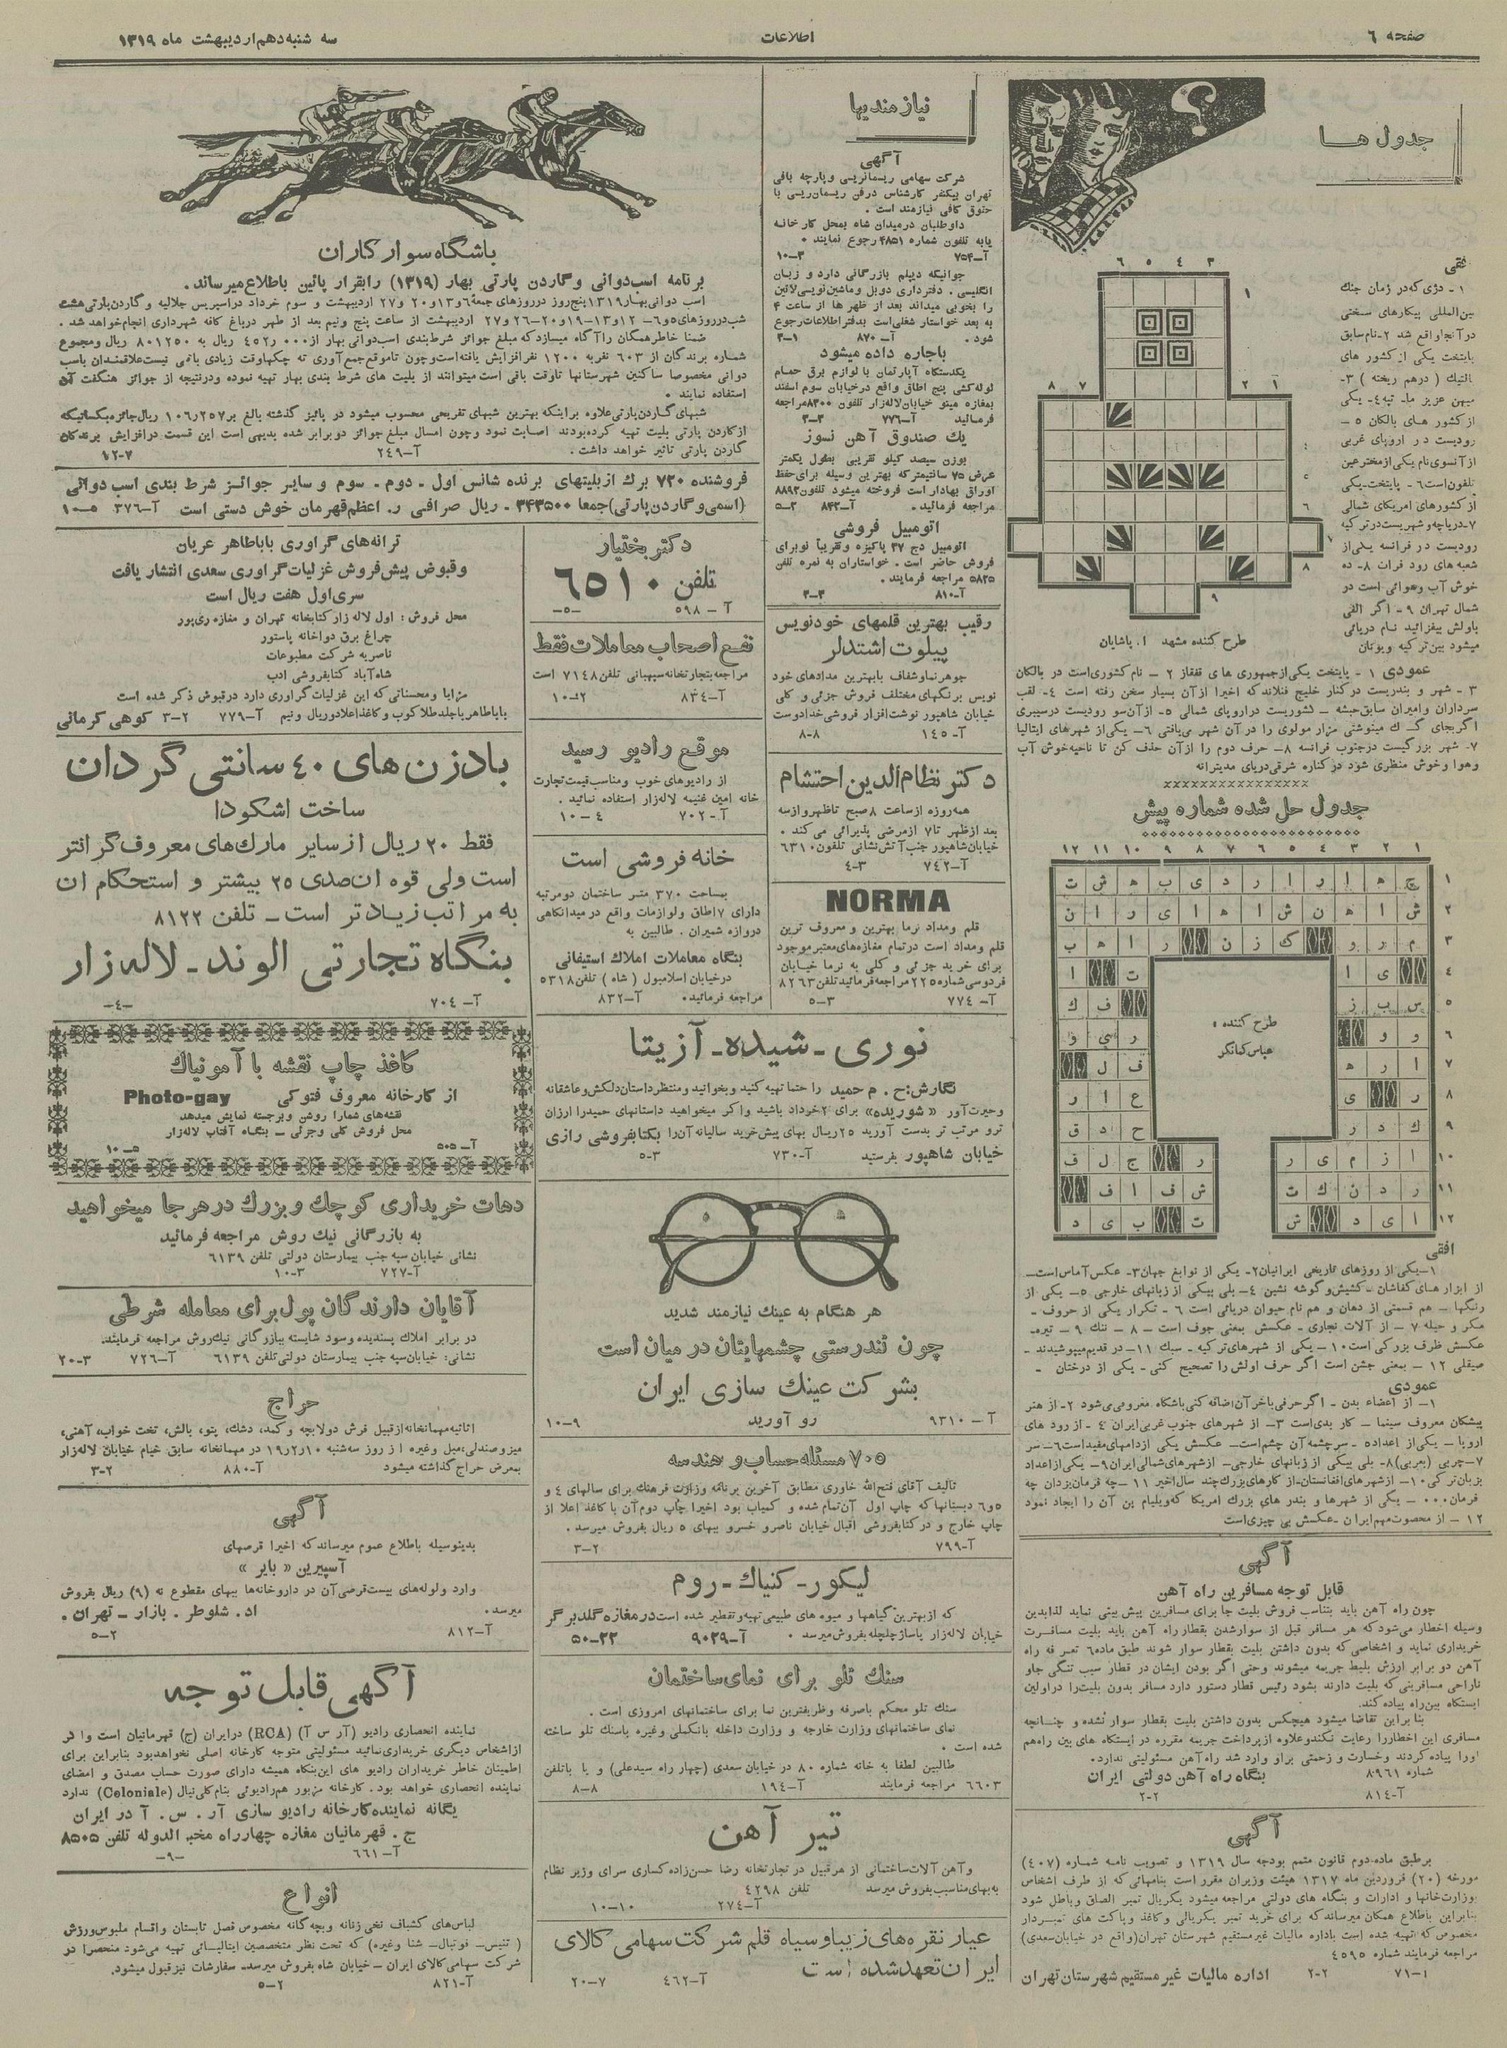 صفحه ٦
اطلاعات
سه شنبه دهم اردیبهشت ماه ۱۳۱۹
جدول ها
افقی
۱ - دژی که در زمان جنگ
بین‌المللی پیکارهای سختی
در آنجا واقع شد ۲- نام سابق
پایتخت یکی از کشور های
بالتیک ( درهم ریخته ) ۳-
میهن عزیز ما- تپه ٤- یکی
از کشور های بالکان ٥ -
رودیست در اروپای غربی
از آنسوی نام یکی از مخترعین
تلفون است ٦ - پایتخت یکی
از کشورهای امریکای شمالی
۷- دریاچه و شهریست در ترکیه
رودیست در فرانسه یکی از
شعبه های رود فرات ۸- ده
خوش آب و هوائی است در
شمال تهران ۹ - اگر الفی
باولش بیفزائید نام دریائی
میشود بین ترکیه و یونان
طرح کننده مشهد ا. پاشایان
عمودی ۱ - پایتخت یکی از جمهوری های قفقاز ۲ - نام کشوری است در بالکان
۳ - شهر و بندریست در کنار خلیج فنلاند که اخیرا از آن بسیار سخن رفته است ٤- لقب
سرداران و امیران سابق حبشه - کشوریست در اروپای شمالی ٥- از آن سو رودیست در سیبری
اگر بجای گ ك مینوشتی مزار مولوی را در آن شهر می‌یافتی ٦ - یکی از شهرهای ایتالیا
۷- شهر بزرگیست در جنوب فرانسه ۸- حرف دوم را از آن حذف کن تا ناحیه خوش آب
و هوا و خوش منظری شود در کناره شرقی دریای مدیترانه
جدول حل شده شماره پیش
طرح کننده :
عباس کبانگر
افقی
۱- یکی از روزهای تاریخی ایرانیان ۲- یکی از نوابغ جهان ۳- عکس آماس است-
از ابزار های کفاشان - کشیش و گوشه نشین ٤- بلی بیکی از زبانهای خارجی ٥- یکی از
رنگها - هم قسمتی از دهان و هم نام حیوان دریائی است ٦ - تکرار یکی از حروف -
مکر و حیله ۷ - از آلات نجاری - عکسش بمعنی جوف است - ۸ - ننگ ۹ - تیره-
عکسش ظرف بزرگی است ۱۰ - یکی از شهرهای ترکیه - سبك ۱۱- در قدیم میپوشیدند -
صیقلی ۱۲ - بمعنی جشن است اگر حرف اولش را تصحیح کنی - یکی از درختان -
عمودی
۱- از اعضاء بدن - اگر حرفی بآخر آن اضافه کنی باشگاه معروفی می‌شود ۲- از هنر
پیشگان معروف سینما - کار بدی است ۳- از شهرهای جنوب غربی ایران ٤ - از رود های
اروپا - یکی از اعداد ٥ - سرچشمه آن چشم است - عکسش یکی از دامهای مفید است ٦ - سر
۷- چربی (بعربی) ۸- بلی بیکی از زبانهای خارجی - از شهرهای شمالی ایران ۹- یکی از اعداد
بزبان ترکی ۱۰ - از شهرهای افغانستان - از کارهای بزرگ چند سال اخیر ۱۱ - چه فرمان یزدان چه
فرمان۰۰۰ - یکی از شهرها و بندر های بزرگ امریکا که ویلیام پن آن را ایجاد نمود
۱۲ - از محصوت مهم ایران - عکسش بی چیزی است
آگهی
قابل توجه مسافرین راه آهن
چون راه آهن باید بتناسب فروش بلیت جا برای مسافرین پیش بینی نماید لذا بدین
وسیله اخطار می‌شود که هر مسافر قبل از سوار شدن بقطار راه آهن باید بلیت مسافرت
خریداری نماید و اشخاصی که بدون داشتن بلیت بقطار سوار شوند طبق ماده ٦ تعرفه راه
آهن دو برابر ارزش بلیط جریمه میشوند و حتی اگر بودن ایشان در قطار سبب تنگی جا و
ناراحتی مسافرینی که بلیت دارند بشود رئیس قطار دستور دارد مسافر بدون بلیت را در اولین
ایستگاه بین راه پیاده کند.
بنا براین تقاضا میشود هیچکس بدون داشتن بلیت بقطار سوار نشده و چنانچه
مسافری این اخطار را رعایت نکند و علاوه از پرداخت جریمه مقرره در ایستگاه های بین راه هم
اورا پیاده کردند و خسارت و زحمتی براو وارد شد راه آهن مسئولیتی ندارد.
شماره ۸۹٦۱
بنگاه راه آهن دولتی ایران
آ-۸۱٤ ۲-۲
آگهی
برطبق ماده دوم قانون متمم بودجه سال ۱۳۱۹ و تصویب نامه شماره (٤۰۷)
مورخه (۲۰) فروردین ماه ۱۳۱۷ هیئت وزیران مقرر است بنامهائی که از طرف اشخاص
بوزارتخانها و ادارات و بنگاه های دولتی مراجعه میشود یکریال تمبر الصاق و باطل شود
بنابراین باطلاع همگان میرساند که برای خرید تمبر یکریالی و کاغذ و پاکت های تمبردار
مخصوص که تهیه شده است باداره مالیات غیر مستقیم شهرستان تهران (واقع در خیابان سعدی)
مراجعه فرمایند شماره ٤٥۹٥
۷۱-۱ ۲-۲ اداره مالیات غیر مستقیم شهرستان تهران
نیازمندیها
آگهی
شرکت سهامی ریسمانریسی و پارچه بافی
تهران بیکنفر کارشناس در فن ریسمان ریسی با
حقوق کافی نیازمند است .
داوطلبان درمیدان شاه بمحل کارخانه
یا به تلفون شماره ٤۸٥۱ رجوع نمایند .
آ-۷٥٤ ۳-۱۰
جوانیکه دیپلم بازرگانی دارد و زبان
انگلیسی . دفترداری دوبل و ماشین نویسی لاتین
را بخوبی میداند بعد از ظهر ها از ساعت ٤
به بعد خواستار شغلی است بدفتر اطلاعات رجوع
شود . آ-۸۷۰ ۱-۳
باجاره داده میشود
یکدستگاه آپارتمان با لوازم برق حمام
لوله کشی پنج اطاق واقع در خیابان سوم اسفند
بمغازه مینو خیابان لاله‌زار تلفون ۸۳۰۰ مراجعه
فرمائید آ-۷۷٦ ۳-۳
یك صندوق آهن نسوز
بوزن سیصد کیلو تقریبی بطول یکمتر
عرض ۷٥ سانتیمتر که بهترین وسیله برای حفظ
اوراق بهادار است فروخته میشود تلفون ۸۸۹۳
مراجعه فرمائید . آ-۸٤۲ ۲-٥
اتومبیل فروشی
اتومبیل دج ۳۷ پاکیزه و تقریباً نو برای
فروش حاضر است . خواستاران به نمره تلفن
٥۸۲٥ مراجعه فرمایند .
آ-۸۱۰ ۳-۳
رقیب بهترین قلمهای خودنویس
پیلوت اشتدلر
جوهر نما و شفاف با بهترین مدادهای خود
نویس برنگهای مختلف فروش جزئی و کلی
خیابان شاهپور نوشت افزار فروشی خدا دوست
آ-۱٤٥ ۸-۸
دکتر نظام الدین احتشام
همه روزه از ساعت ۸ صبح تا ظهر و از سه
بعد از ظهر تا ۷ از مرضی پذیرائی می کند .
خیابان شاهپور جنب آتش نشانی تلفون ٦۳۱۰
آ-۷٤۲ ۳-٤
NORMA
قلم و مداد نرما بهترین و معروف ترین
قلم و مداد است در تمام مغازه‌های معتبر موجود
برای خرید جزئی و کلی به نرما خیابان
فردوسی شماره ۲۲٥ مراجعه فرمائید تلفن ۸۲٦۳
آ-۷۷٤ ۳-٥
باشگاه سوار کاران
برنامه اسب دوانی و گاردن پارتی بهار (۱۳۱۹) را بقرار پائین باطلاع میرساند.
اسب دوانی بهار ۱۳۱۹ پنج روز در روزهای جمعه ٦ و ۱۳ و ۲۰ و ۲۷ اردیبهشت و سوم خرداد در اسپریس جلالیه و گاردن پارتی هشت
شب در روزهای ٥ و ٦- ۱۲ و ۱۳-۱۹ و ۲۰-۲٦ و ۲۷ اردیبهشت از ساعت پنج و نیم بعد از ظهر در باغ کافه شهرداری انجام خواهد شد .
ضمناً خاطر همگان را آگاه میسازد که مبلغ جوائز شرط بندی اسب دوانی بهار از ٤٥۲ر۰۰۰ ریال به ۸۰۱۲٥۰ ریال و مجموع
شماره برندگان از ٦۰۳ نفر به ۱۲۰۰ نفر افزایش یافته است و چون تا موقع جمع آوری ته چکها وقت زیادی باقی نیست علاقمندان باسب
دوانی مخصوصاً ساکنین شهرستانها تا وقت باقی است میتوانند از بلیت های شرط بندی بهار تهیه نموده و در نتیجه از جوائز هنگفت آن
استفاده نمایند .
شبهای گاردن پارتی علاوه بر اینکه بهترین شبهای تفریحی محسوب میشود در پائیز گذشته بالغ بر ۱۰٦ر۲٥۷ ریال جائزه بکسانیکه
از گاردن پارتی بلیت تهیه کرده بودند اصابت نمود و چون امسال مبلغ جوائز دو برابر شده بدیهی است این قسمت در افزایش برندگان
گاردن پارتی تاثیر خواهد داشت . آ-۲٤۹ ۷-۱۲
فروشنده ۷۳۰ برك از بلیتهای برنده شانس اول - دوم - سوم و سایر جوائز شرط بندی اسب دوانی
(اسمی و گاردن پارتی) جمعاً ۳٤۳٥۰۰ - ریال صرافی ر. اعظم قهرمان خوش دستی است آ-۳۷٦ ٥-۱۰
دکتر بختیار
تلفن ٦٥۱۰
آ - ٥۹۸ -٥-
نفع اصحاب معاملات فقط
مراجعه بتجارتخانه سپهبانی تلفن ۷۱٤۸ است
آ-۸۳٤ ۲-۱۰
موقع رادیو رسید
از رادیوهای خوب و مناسب قیمت تجارت
خانه امین غنیمه لاله‌زار استفاده نمائید .
آ-۷۰۲ ٤-۱۰
خانه فروشی است
بمساحت ۳۷۰ متر ساختمان دو مرتبه
دارای ۷ اطاق و لوازمات واقع در میدانگاهی
دروازه شمیران . طالبین به
بنگاه معاملات املاك استیفانی
در خیابان اسلامبول ( شاه ) تلفن ٥۳۱۸
مراجعه فرمائید. آ-۸۳۲
ترانه‌های گرآوری باباطاهر عریان
و قبوض پیش فروش غزلیات گراوری سعدی انتشار یافت
سری اول هفت ریال است
محل فروش : اول لاله زار کتابخانه تهران و مغازه ری‌پور
چراغ برق دواخانه پاستور
ناصریه شرکت مطبوعات
شاه‌آباد کتابفروشی ادب
مزایا و محسناتی که این غزلیات گراوری دارد در قبوض ذکر شده است
باباطاهر با جلد طلاکوب و کاغذ اعلا دو ریال و نیم آ-۷۷۹ ۲-۳ کوهی کرمانی
بادزن های ٤۰ سانتی گردان
ساخت اشکودا
فقط ۲۰ ریال از سایر مارك‌های معروف گرانتر
است ولی قوه آن صدی ۲٥ بیشتر و استحکام آن
به مراتب زیادتر است - تلفن ۸۱۲۲
بنگاه تجارتی الوند - لاله زار
آ-۷۰٤ -٤-
کاغذ چاپ نقشه با آمونیاك
از کارخانه معروف فتوکی Photo-gay
نقشه‌های شمارا روشن و برجسته نمایش میدهد
محل فروش کلی و جزئی - بنگاه آفتاب لاله‌زار
آ-٥۰٥ ٥-۱۰
دهات خریداری کوچك و بزرك در هرجا میخواهید
به بازرگانی نیك روش مراجعه فرمائید
نشانی خیابان سپه جنب بیمارستان دولتی تلفن ٦۱۳۹
آ-۷۲۷ ۳-۱۰
آقایان دارندگان پول برای معامله شرطی
در برابر املاك پسندیده وسود شایسته ببازرگانی نیك روش مراجعه فرمایند.
نشانی: خیابان سپه جنب بیمارستان دولتی تلفن ٦۱۳۹ آ-۷۲٦ ۳-۲۰
حراج
اثاثیه مهمانخانه از قبیل فرش دولابچه و کمد، دشك، پتو، بالش، تخت خواب، آهنی،
میز و صندلی، مبل وغیره از روز سه شنبه ۱۹ر۲ر۱۰ در مهمانخانه سابق خیام خیابان لاله‌زار
بمعرض حراج گذاشته میشود آ-۸۸۰ ۲-۳
آگهی
بدینوسیله باطلاع عموم میرساند که اخیراً قرصهای
آسپیرین « بایر »
وارد و لوله‌های بیست قرصی آن در داروخانه‌ها ببهای مقطوع نه (۹) ریال بفروش
میرسد . اد. شلوطر . بازار - تهران .
آ-۸۱۲ ۲-٥
آگهی قابل توجه
نماینده انحصاری رادیو (آر س آ) (RCA) درایران (ج) قهرمانیان است واگر
از اشخاص دیگری خریداری نمائید مسئولیتی متوجه کارخانه اصلی نخواهد بود بنابراین برای
اطمینان خاطر خریداران رادیو های این بنگاه همیشه دارای صورت حساب مصدق و امضای
نماینده انحصاری خواهد بود . کارخانه مزبور هم رادیوئی بنام کلنیال (Coloniale) ندارد
یگانه نماینده کارخانه رادیو سازی آر . س . آ در ایران
ج . قهرمانیان مغازه چهارراه مخبر الدوله تلفن ۸٥۰٥
آ-٦٦۱ -۹-
انواع
لباس‌های کشباف نخی زنانه و بچه گانه مخصوص فصل تابستان و اقسام ملبوس ورزش
( تنیس - فوتبال - شنا وغیره) که تحت نظر متخصصین ایتالیائی تهیه می‌شود منحصراً در
شرکت سهامی کالای ایران - خیابان شاه بفروش میرسد - سفارشات نیز قبول میشود.
آ-۸۲۱ ۲-٥
نوری - شیده - آزیتا
نگارش: ح . م حمید را حتما تهیه کنید و بخوانید و منتظر داستان دلکش و عاشقانه
وحیرت آور « شوریده » برای ۲ خرداد باشید واگر میخواهید داستانهای حمید را ارزان
تر و مرتب تر بدست آورید ۲٥ ریال بهای پیش خرید سالیانه آن را بکتابفروشی رازی
خیابان شاهپور بفرستید آ-۷۳۰ ۳-٥
هر هنگام به عینك نیازمند شدید
چون تندرستی چشمهایتان در میان است
بشرکت عینك سازی ایران
رو آورید
آ - ۹۳۱۰ ۹-۱۰
۷۰٥ مسئله حساب و هندسه
تالیف آقای فتح‌الله خاوری مطابق آخرین برنامه وزارت فرهنك برای سالهای ٤ و
٥ و ٦ دبستانها که چاپ اول آن تمام شده و کمیاب بود اخیراً چاپ دوم آن با کاغذ اعلا از
چاپ خارج و در کتابفروشی اقبال خیابان ناصر و خسرو ببهای ٥ ریال بفروش میرسد .
آ-۷۹۹ ۲-۳
لیکور - کنیاك - روم
که از بهترین گیاهها و میوه های طبیعی تهیه و تقطیر شده است در مغازه گلدبرگر
خیابان لاله‌زار پاساژ چلچله بفروش میرسد . آ-۹۰۲۹ ۲۲-٥۰
سنك تلو برای نمای ساختمان
سنك تلو محکم باصرفه و ظریفترین نما برای ساختمانهای امروزی است .
نمای ساختمانهای وزارت خارجه و وزارت داخله بانك ملی وغیره با سنك تلو ساخته
شده است .
طالبین لطفاً به خانه شماره ۸۰ در خیابان سعدی (چهار راه سید علی) و یا با تلفن
٦٦۰۳ مراجعه فرمایند آ-۱۹٤ ۸-۸
تیر آهن
و آهن آلات ساختمانی از هر قبیل در تجارتخانه رضا حسن زاده کساری سرای وزیر نظام
به بهای مناسب بفروش میرسد تلفن ٤۲۹۸
آ-۲۷٤ ۱۰-۱۰
عیار نقره‌های زیبا و سیاه قلم شرکت سهامی کالای
ایران تعهد شده است آ-٤٦۲ ۷-۲۰